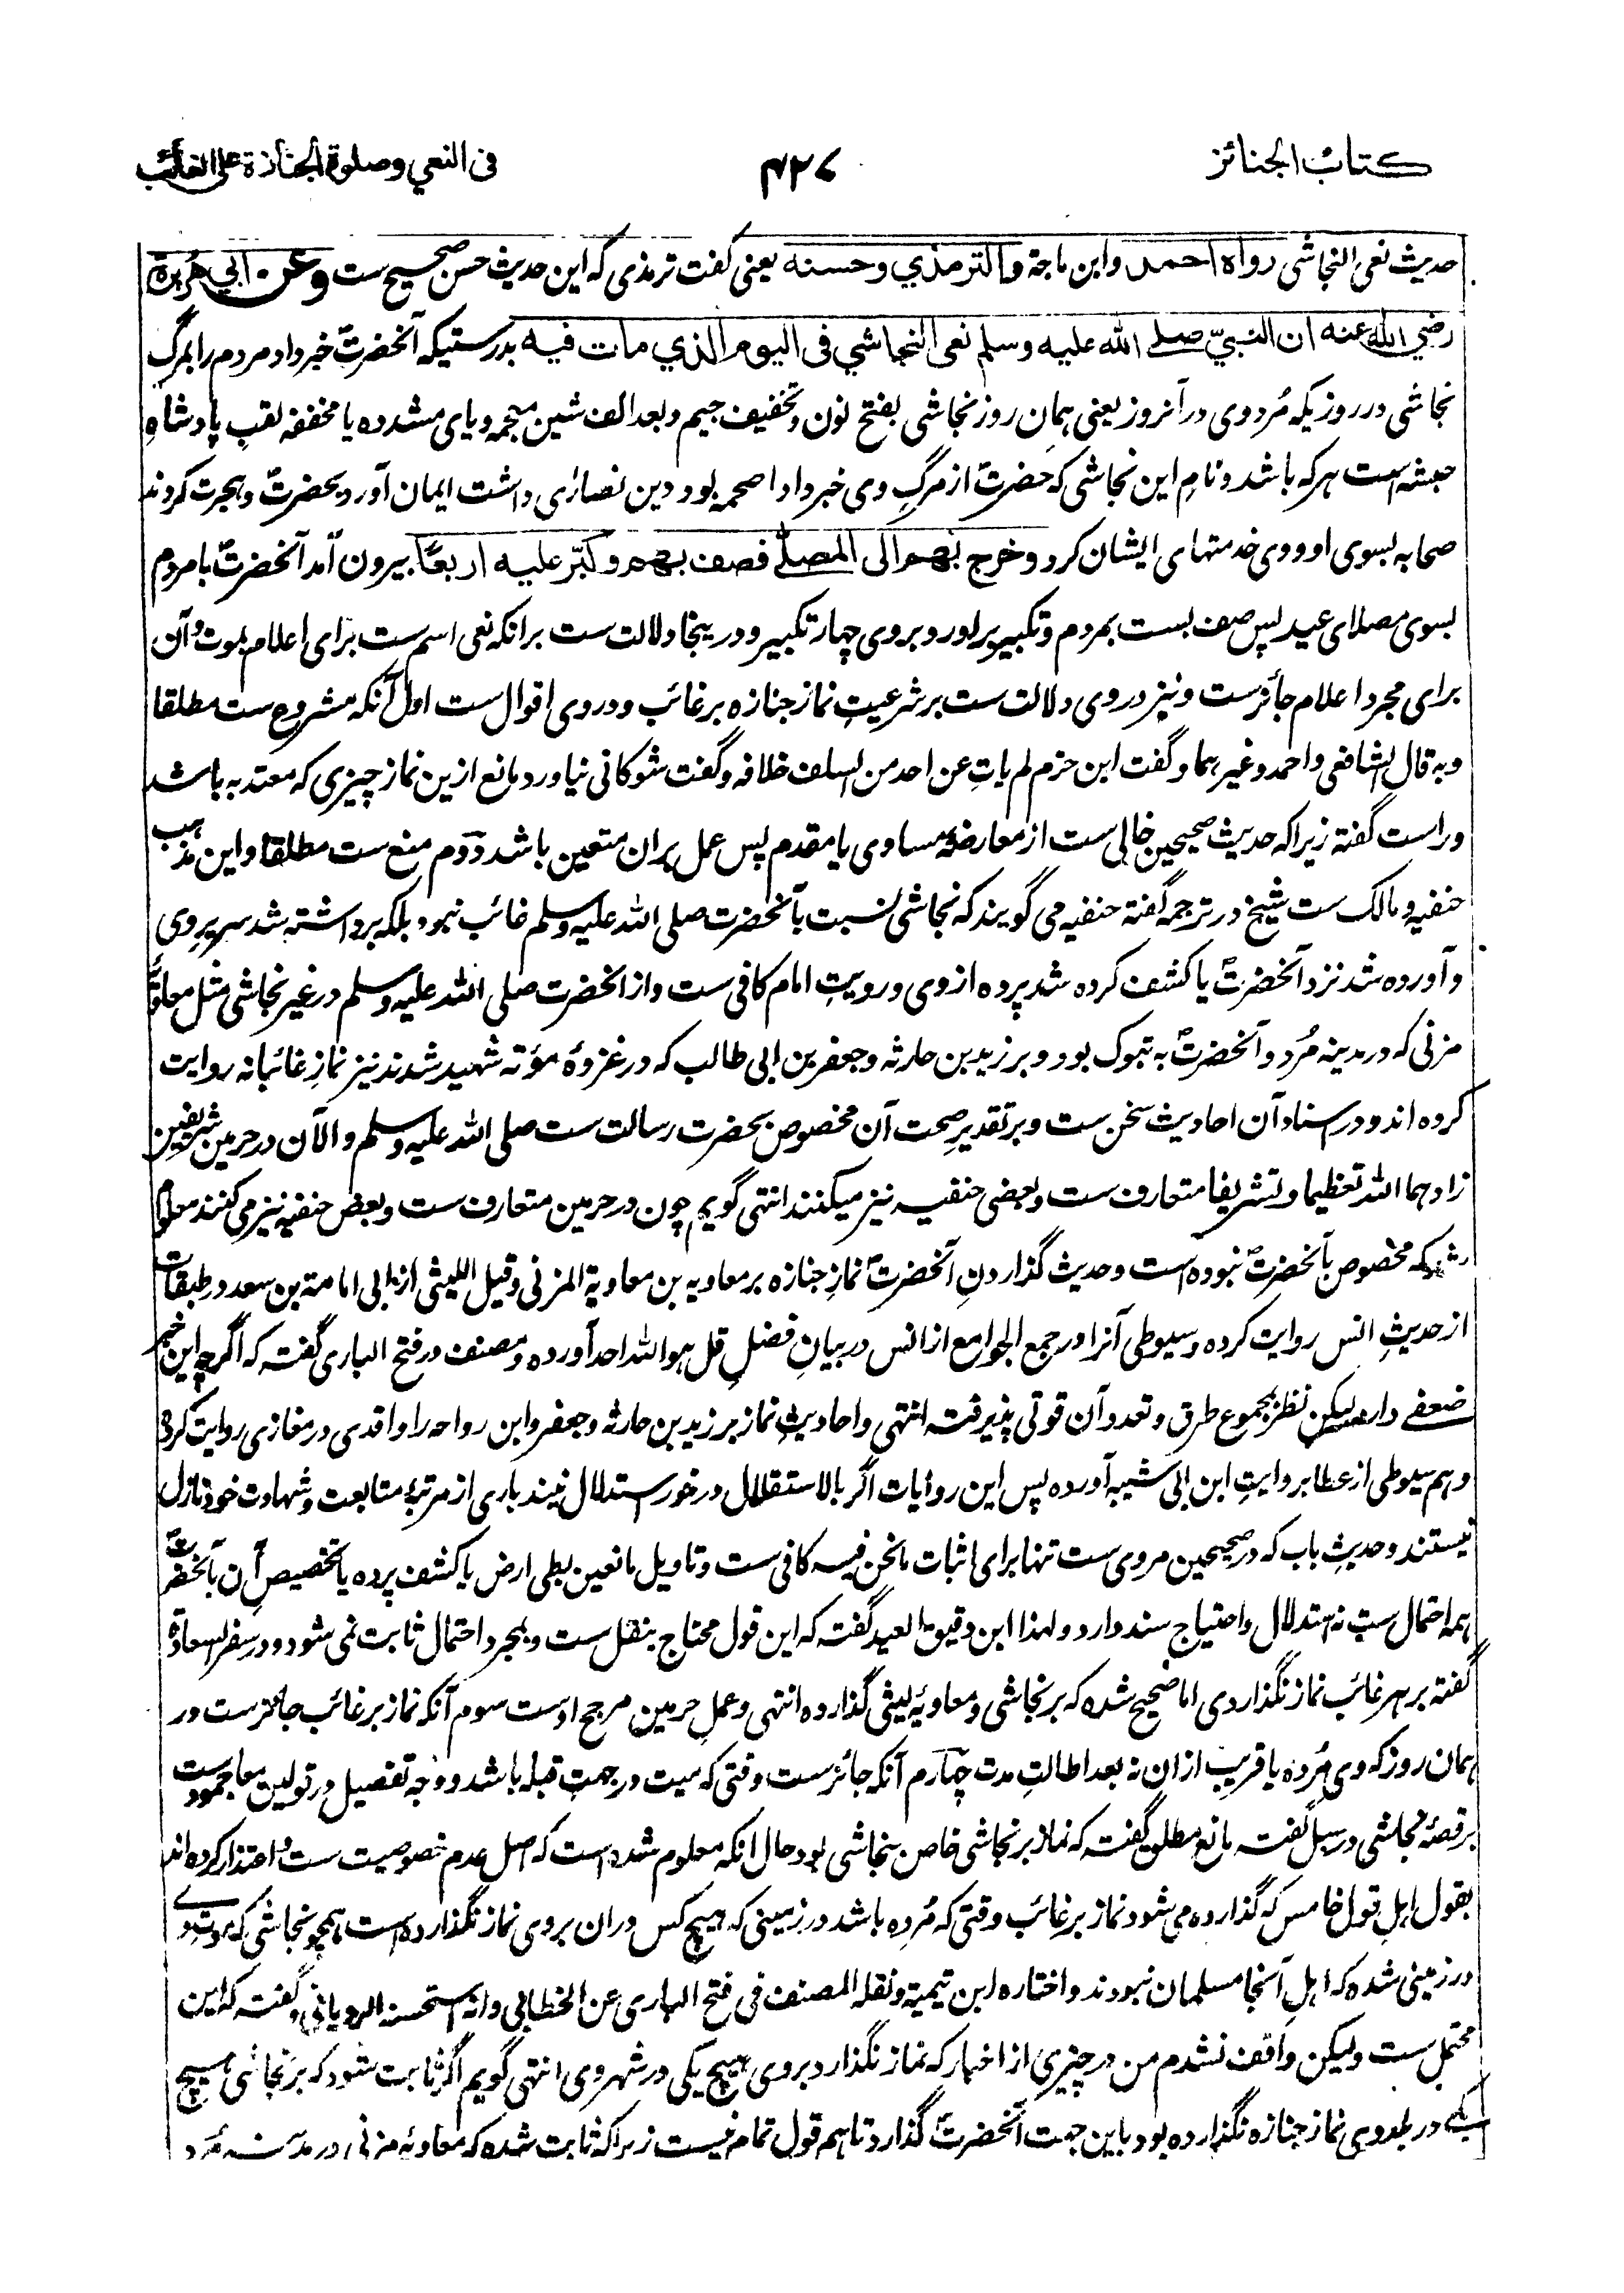 كتاب الجنائز
۴۲۷
فی النعي وصلوة الجنازة علی الغائب
حدیث نعی النجاشی رواه احمد وابن ماجة والترمذي وحسنه یعنی گفت ترمذی که این حدیث حسن صحیح ست وعن ابي هريرة
رضي الله عنه ان النبيّ صلے الله عليه وسلم نعی النجاشي فی اليوم الذي مات فيه بدرستیکه آنحضرتؐ خبر داد مردم را بمرگ
نجاشی در روزیکه مُرد وی در آنروز یعنی همانِ روز نجاشی بفتح نون و تخفیف جیم و بعد الف شین معجمه ویای مشدده یا مخففه لقبِ پادشاهِ
حبشه است هر که باشد و نامِ این نجاشی که حضرتؐ از مرگِ وی خبر داد اصحمه بود و دین نصاریٰ داشت ایمان آورد بحضرتؐ و هجرت کردند
صحابه بسوی او و وی خدمتهای ایشان کرد وخرج بهم الی المصلّے فصف بهم وكبّر عليه اربعًا بیرون آمد آنحضرتؐ با مردم
بسوی مصلای عید پس صف بست بمردم و تکبیر براورد بر وی چهار تکبیر و در ینجا دلالت ست برانکه نعی اسم ست برای اعلام بموت و آن
برای مجرد اعلام جائزست و نیز در وی دلالت ست بر شرعیتِ نماز جنازه بر غائب و در وی اقوال ست اول آنکه مشروع ست مطلقا
و به قال الشافعی واحمد وغیرهما وگفت ابن حزم لم یاتِ عن احد من السلف خلافه وگفت شوکانی نیاورد مانع ازین نماز چیزی که معتد به باشد
وراست گفته زیراکه حدیث صحیحین خالی ست از معارضهٔ مساوی یا مقدم پس عمل بران متعین باشد دوم منع ست مطلقا و این مذهب
حنفیه و مالک ست شیخ در ترجمه گفته حنفیه می گویند که نجاشی نسبت بآنحضرت صلی الله علیه وسلم غائب نبود بلکه برداشته شد سریرِ وی
و آورده شد نزد آنحضرتؐ یا کشف کرده شد پرده از وی و رویتِ امام کافی ست و از آنحضرت صلی الله علیه وسلم در غیر نجاشی مثل معاویهٔ
مزنی که در مدینه مُرد و آنحضرتؐ به تبوک بود و بر زید بن حارثه و جعفر بن ابی طالب که در غزوهٔ مؤته شهید شدند نیز نمازِ غائبانه روایت
کرده اند و در اسناد آن احادیث سخن ست و بر تقدیر صحت آن مخصوص بحضرت رسالت ست صلی الله علیه وسلم و الآن در حرمین شریفین
زادهما الله تعظیما وتشریفا متعارف ست و بعضی حنفیه نیز میکنند انتهی گویم چون در حرمین متعارف ست و بعض حنفیه نیز می کنند معلوم
شد که مخصوص بآنحضرتؐ نبوده است و حدیث گذاردنِ آنحضرتؐ نمازِ جنازه بر معاویه بن معاویة المزنی وقیل اللیثی از ابی امامة بن سعد در طبقات
از حدیثِ انس روایت کرده و سیوطی آنرا در جمع الجوامع از انس در بیانِ فضلِ قل هو الله احد آورده و مصنف در فتح الباری گفته که اگرچه این خبر
ضعفے دارد لیکن نظر بمجموع طرق و تعدد آن قوتی پذیرفته انتهی و احادیثِ نماز بر زید بن حارثه و جعفر و ابن رواحه را واقدی در مغازی روایت کرده
و هم سیوطی از عطا بروایتِ ابن ابی شیبه آورده پس این روایات اگر بالاستقلال در خور استدلال نیند باری از مرتبهٔ متابعت و شهادت خود نازل
نیستند و حدیثِ باب که در صحیحین مروی ست تنها برای اثبات ما نحن فیه کافی ست و تاویل مانعین بطی ارض یا کشف پرده یا تخصیصِ آن بآنحضرتؐ
همه احتمال ست نه استدلال و احتیاج سند دارد و لهذا ابن دقیق العید گفته که این قول محتاج بنقل ست و بمجرد احتمال ثابت نمی شود و در سفر السعادة
گفته بر هر غائب نماز نگذاردی اما صحیح شده که بر نجاشی و معاویهٔ لیثی گذارده انتهی و عملِ حرمین مرجح اوست سوم آنکه نماز بر غائب جائزست در
همان روز که وی مُرده یا قریب ازان نه بعد اطالتِ مدت چهارم آنکه جائزست وقتی که میت در جهتِ قبله باشد و وجه تفصیل در قولین معا جمودست
بر قصهٔ نجاشی در سبل گفته مانع مطلق گفت که نماز بر نجاشی خاص بنجاشی بود حال انکه معلوم شده است که اصل عدم خصوصیت ست و اعتذار کرده اند
بقول اهلِ قول خامس که گذارده می شود نماز بر غائب وقتی که مُرده باشد در زمینی که هیچ کس دران بروی نماز نگذارده است همچو نجاشی که موتِ وے
در زمینی شده که اهلِ آنجا مسلمان نبودند و اختاره ابن تیمیة ونقله المصنف فی فتح الباری عن الخطابی وانه استحسنه الرویانی و گفته که این
محتمل ست ولیکن واقف نشدم من در چیزی از اخبار که نماز نگذارد بروی هیچ یکی در شهر وی انتهی گویم اگر ثابت شود که بر نجاشی هیچ
یکے در بلد وی نماز جنازه نگذارده بود باین جهت آنحضرتؐ گذارد تاهم قول تمام نیست زیراکه ثابت شده که معاویهٔ مزنی در مدینه مُرد